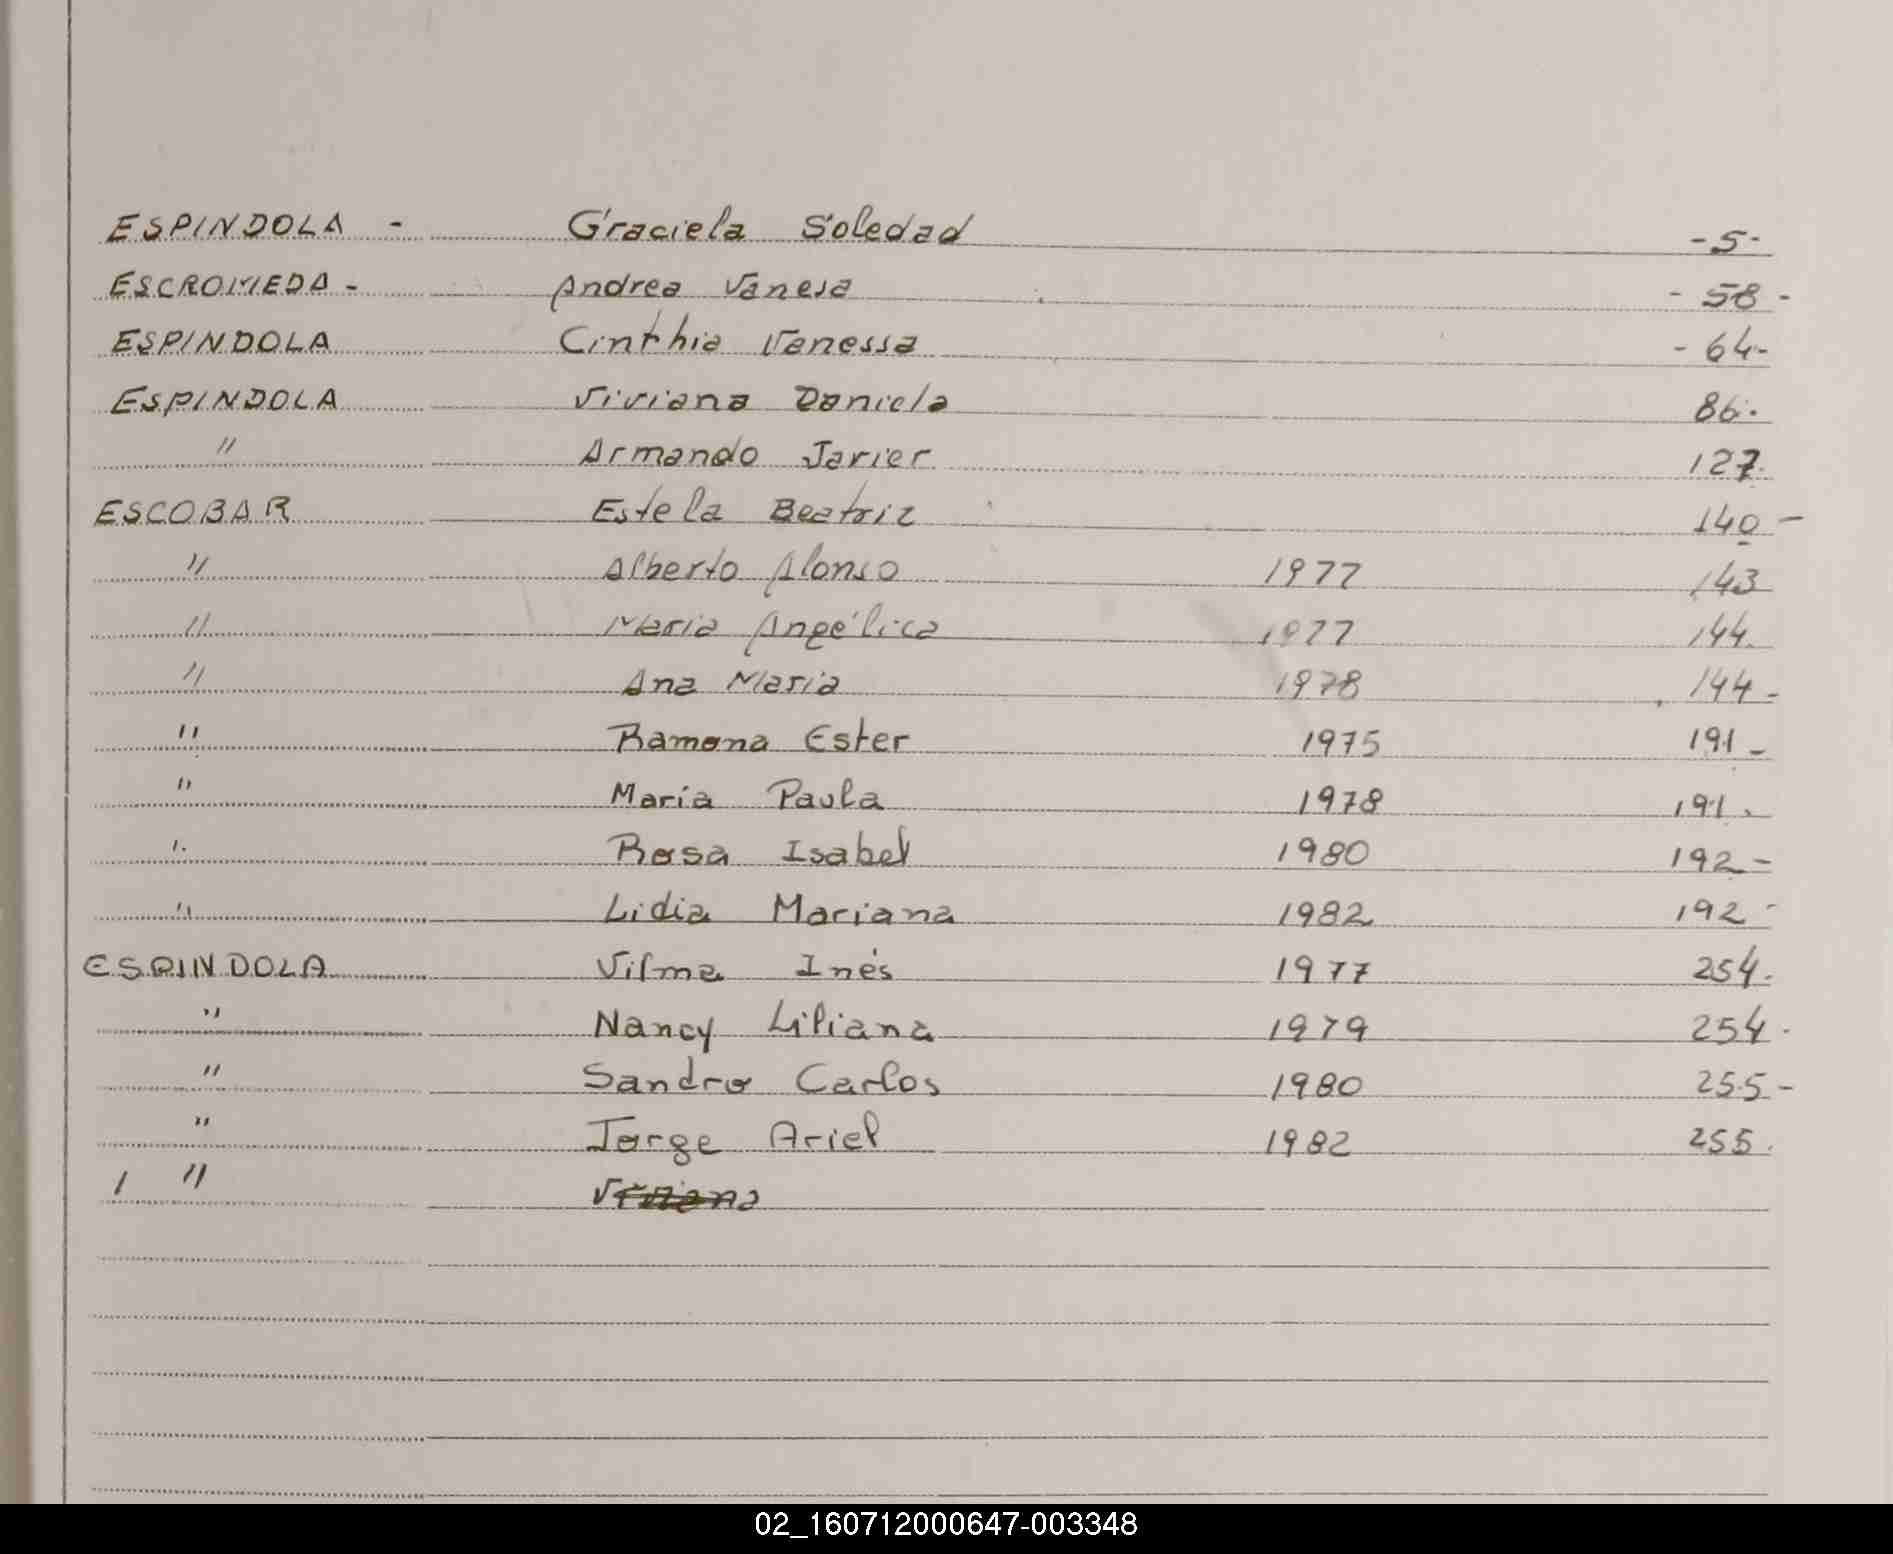 ESPINDOLA - Graciela Soledad -5-
ESCROMEDA - Andrea Vanesa - 58 -
ESPINDOLA Cinthia Vanessa - 64-
ESPINDOLA Viviana Daniela 86.
" Armando Javier 127.
ESCOBAR Estela Beatriz 140 -
" Alberto Alonso 1977 143
" Maria Angélica 1977 144.
" Ana Maria 1978 144-
" Ramona Ester 1975 191-
" María Paula 1978 191.
" Rosa Isabel 1980 192-
" Lidia Mariana 1982 192-
ESPINDOLA Vilma Inés 1977 254.
" Nancy Liliana 1979 254.
" Sandro Carlos 1980 255-
" Jorge Ariel 1982 255.
/ " Viviana
02_160712000647-003348